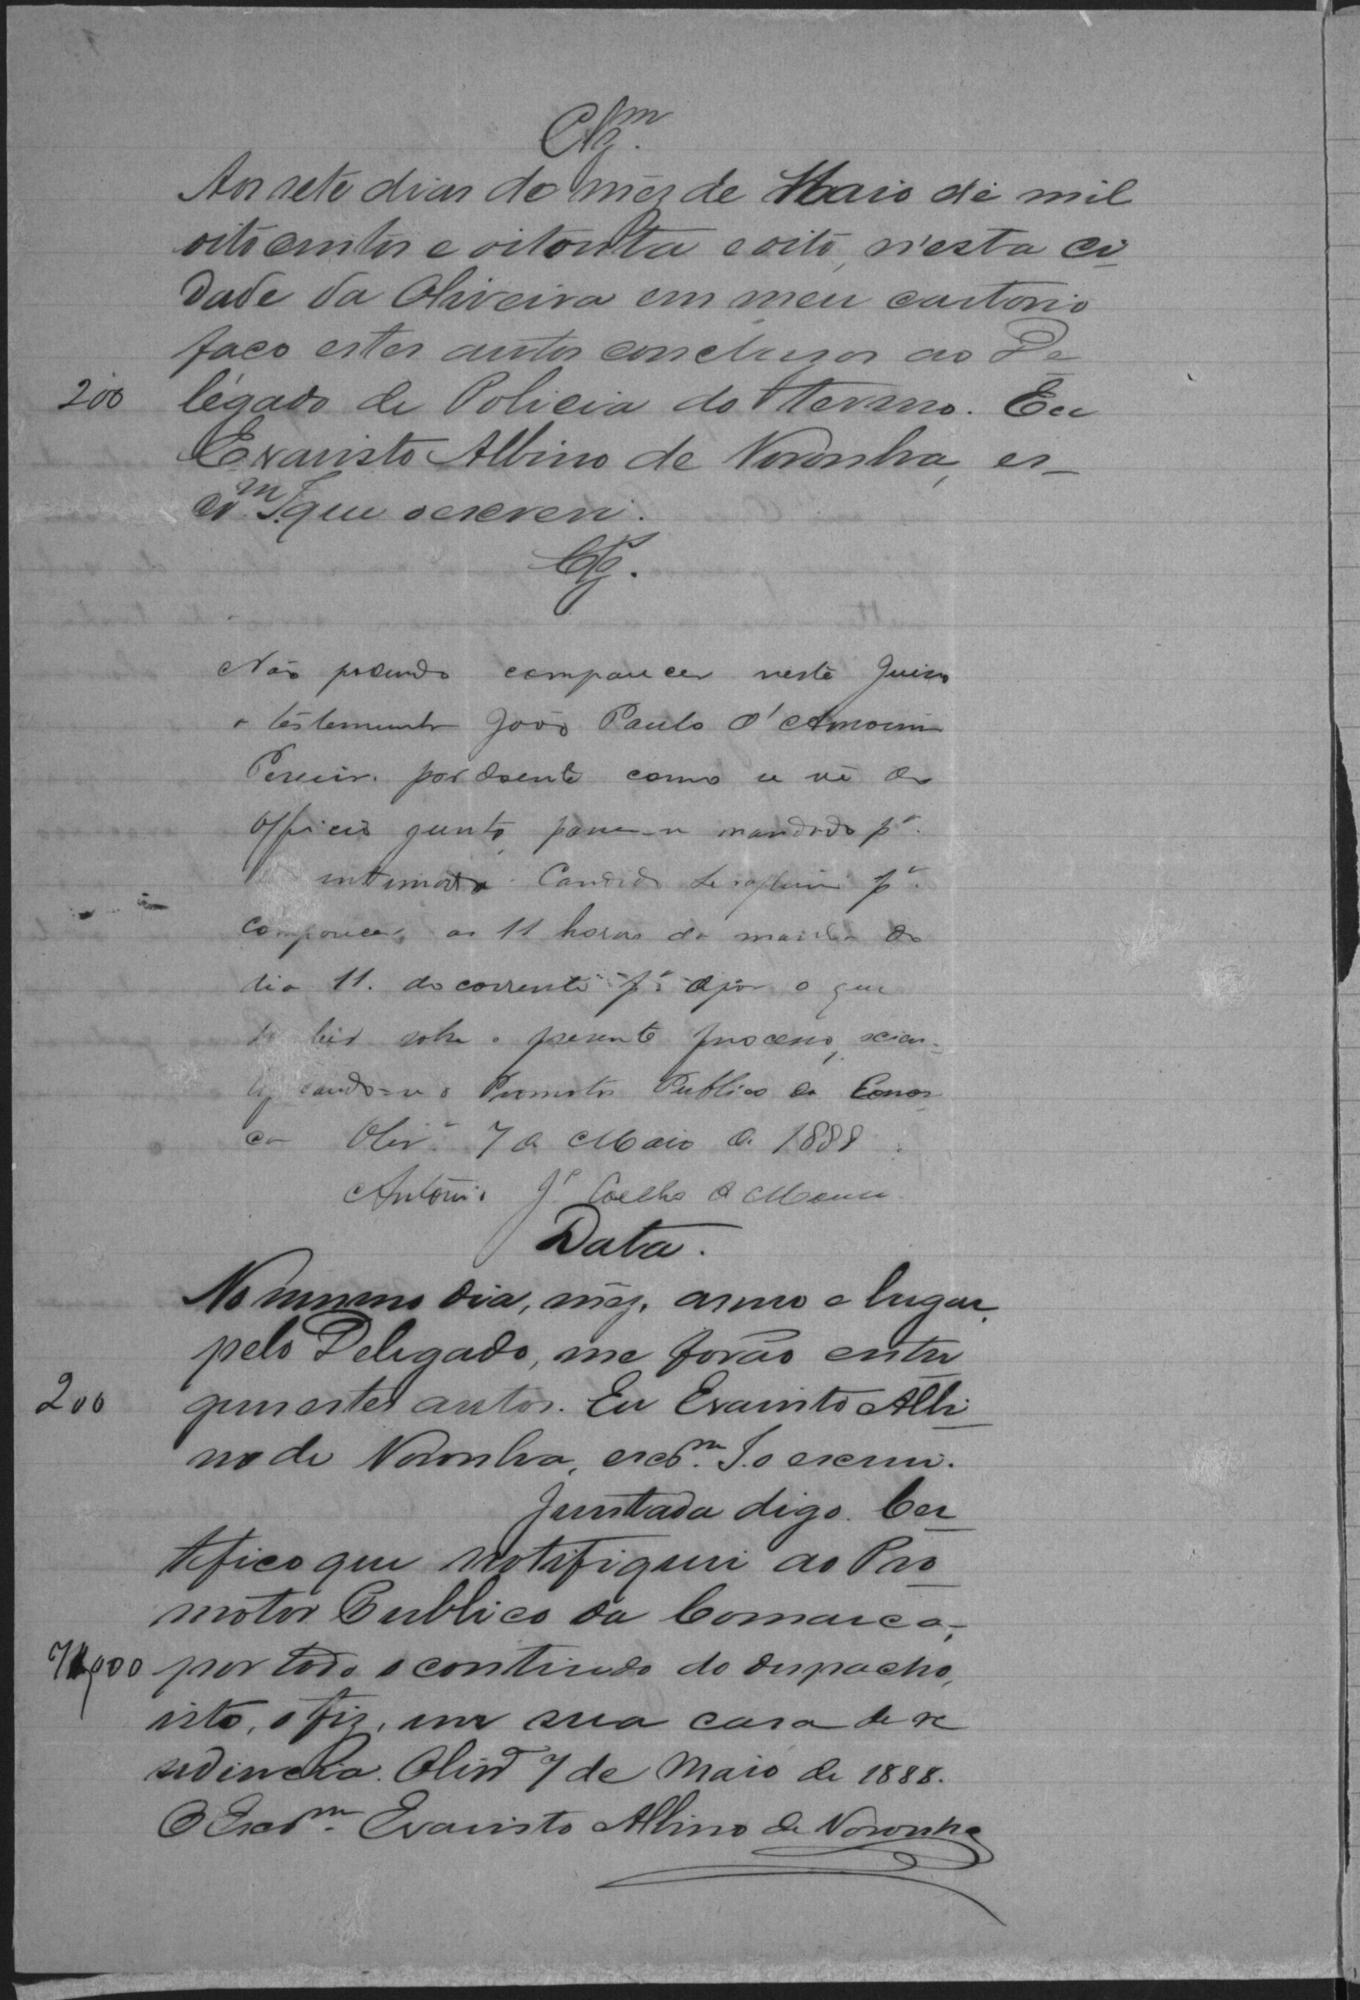 Clz.m
Aos sete dias do mez de Maio de mil
oitocentos e oitenta e oito, n'esta ci
dade da Oliveira em meu cartorio
faço estes autos conclusos ao De
200 légado de Policia do termo. Eu
Evaristo Albino de Noronha, es-
cr.m J. que o escrevi.
Clz.
Não podendo comparecer neste Juizo
a testemunha João Paulo d'Amorim
Pereira por doente como se vê do
officio junto, passe-se mandado p.ª
intimada Candido Seraphim p.ª
comparecer as 11 horas da manhã do
dia 11. do corrente p.ª depor o que
souber sobre o presente processo, scien-
tificando-se o Promotor Publico da Comar
ca Olivr.ª 7 de Maio de 1888
Antonio J.e Coelho de Moura
Data.
No mesmo dia, mêz, anno e lugar,
pelo Delegado, me forão entre
200 gues estes autos. Eu Evaristo Albi
no de Noronha, escr.m J. o escrevi.
Juntada digo. Cer
tifico que notifiquei ao Pro
motor Publico da Comarca,
por todo o contiudo do despacho,
isto, o fiz, em sua casa de re
sidencia. Olivr.ª 7 de Maio de 1888.
O Escr.m Evaristo Albino de Noronha